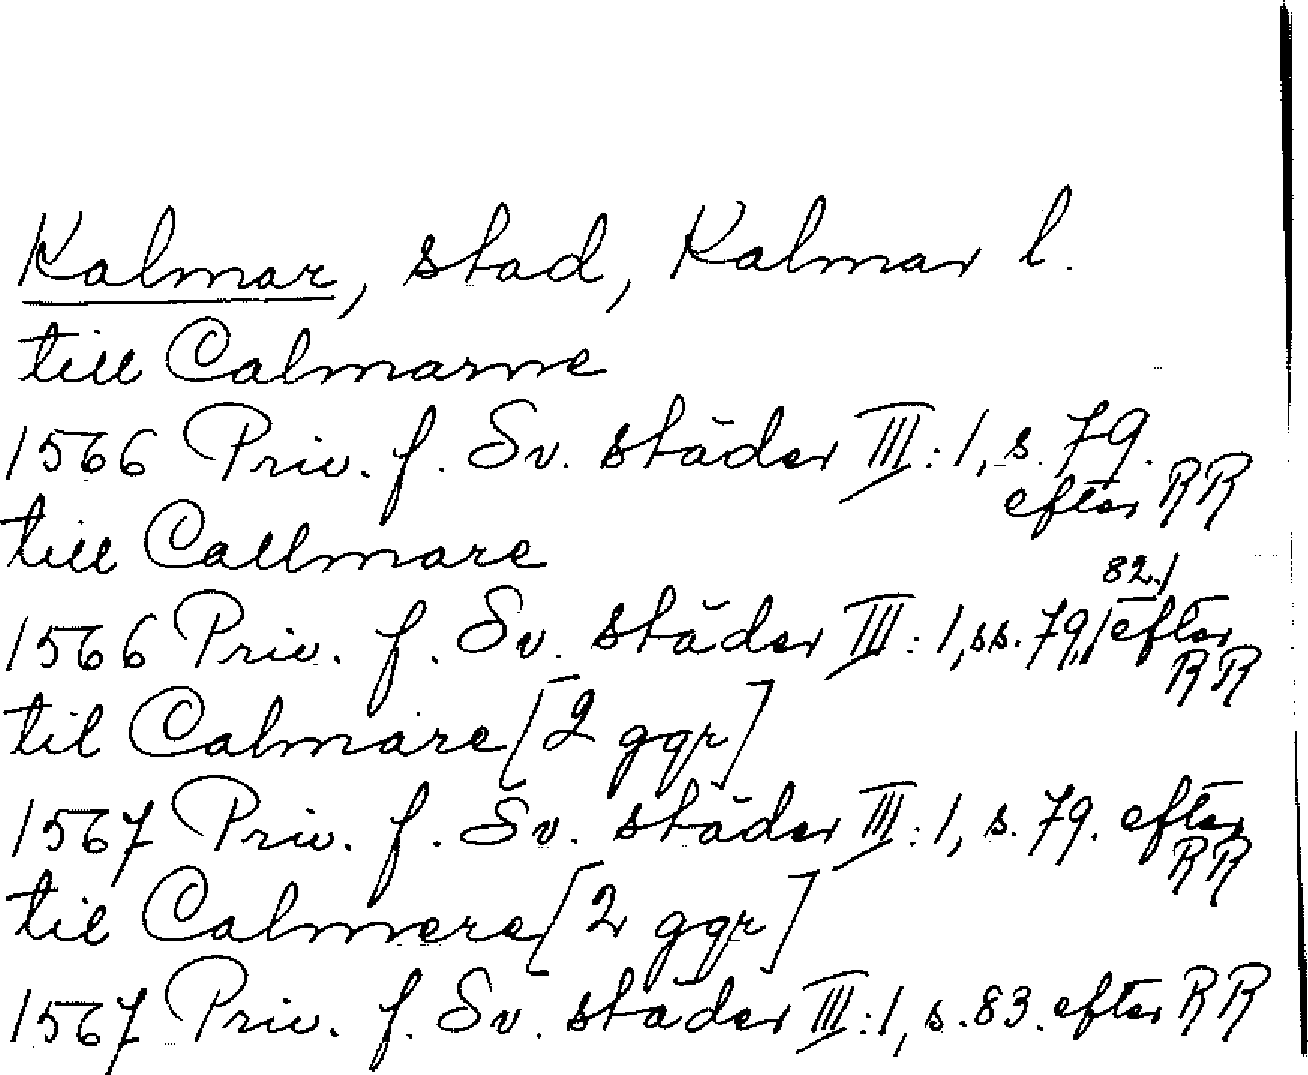 Kalmar, stad, Kalmar l.
till Calmarne
1566 Priv. f. Sv. städer III:1, s. 79.
efter RR
till Callmare
1566 Priv. f. Sv. städer III:1, ss. 79, 82, efter
RR
til Calmare [2 ggr]
1567 Priv. f. Sv. städer III:1, s. 79. efter
RR
til Calmere [2 ggr]
1567 Priv. f. Sv. städer III:1, s. 83. efter RR